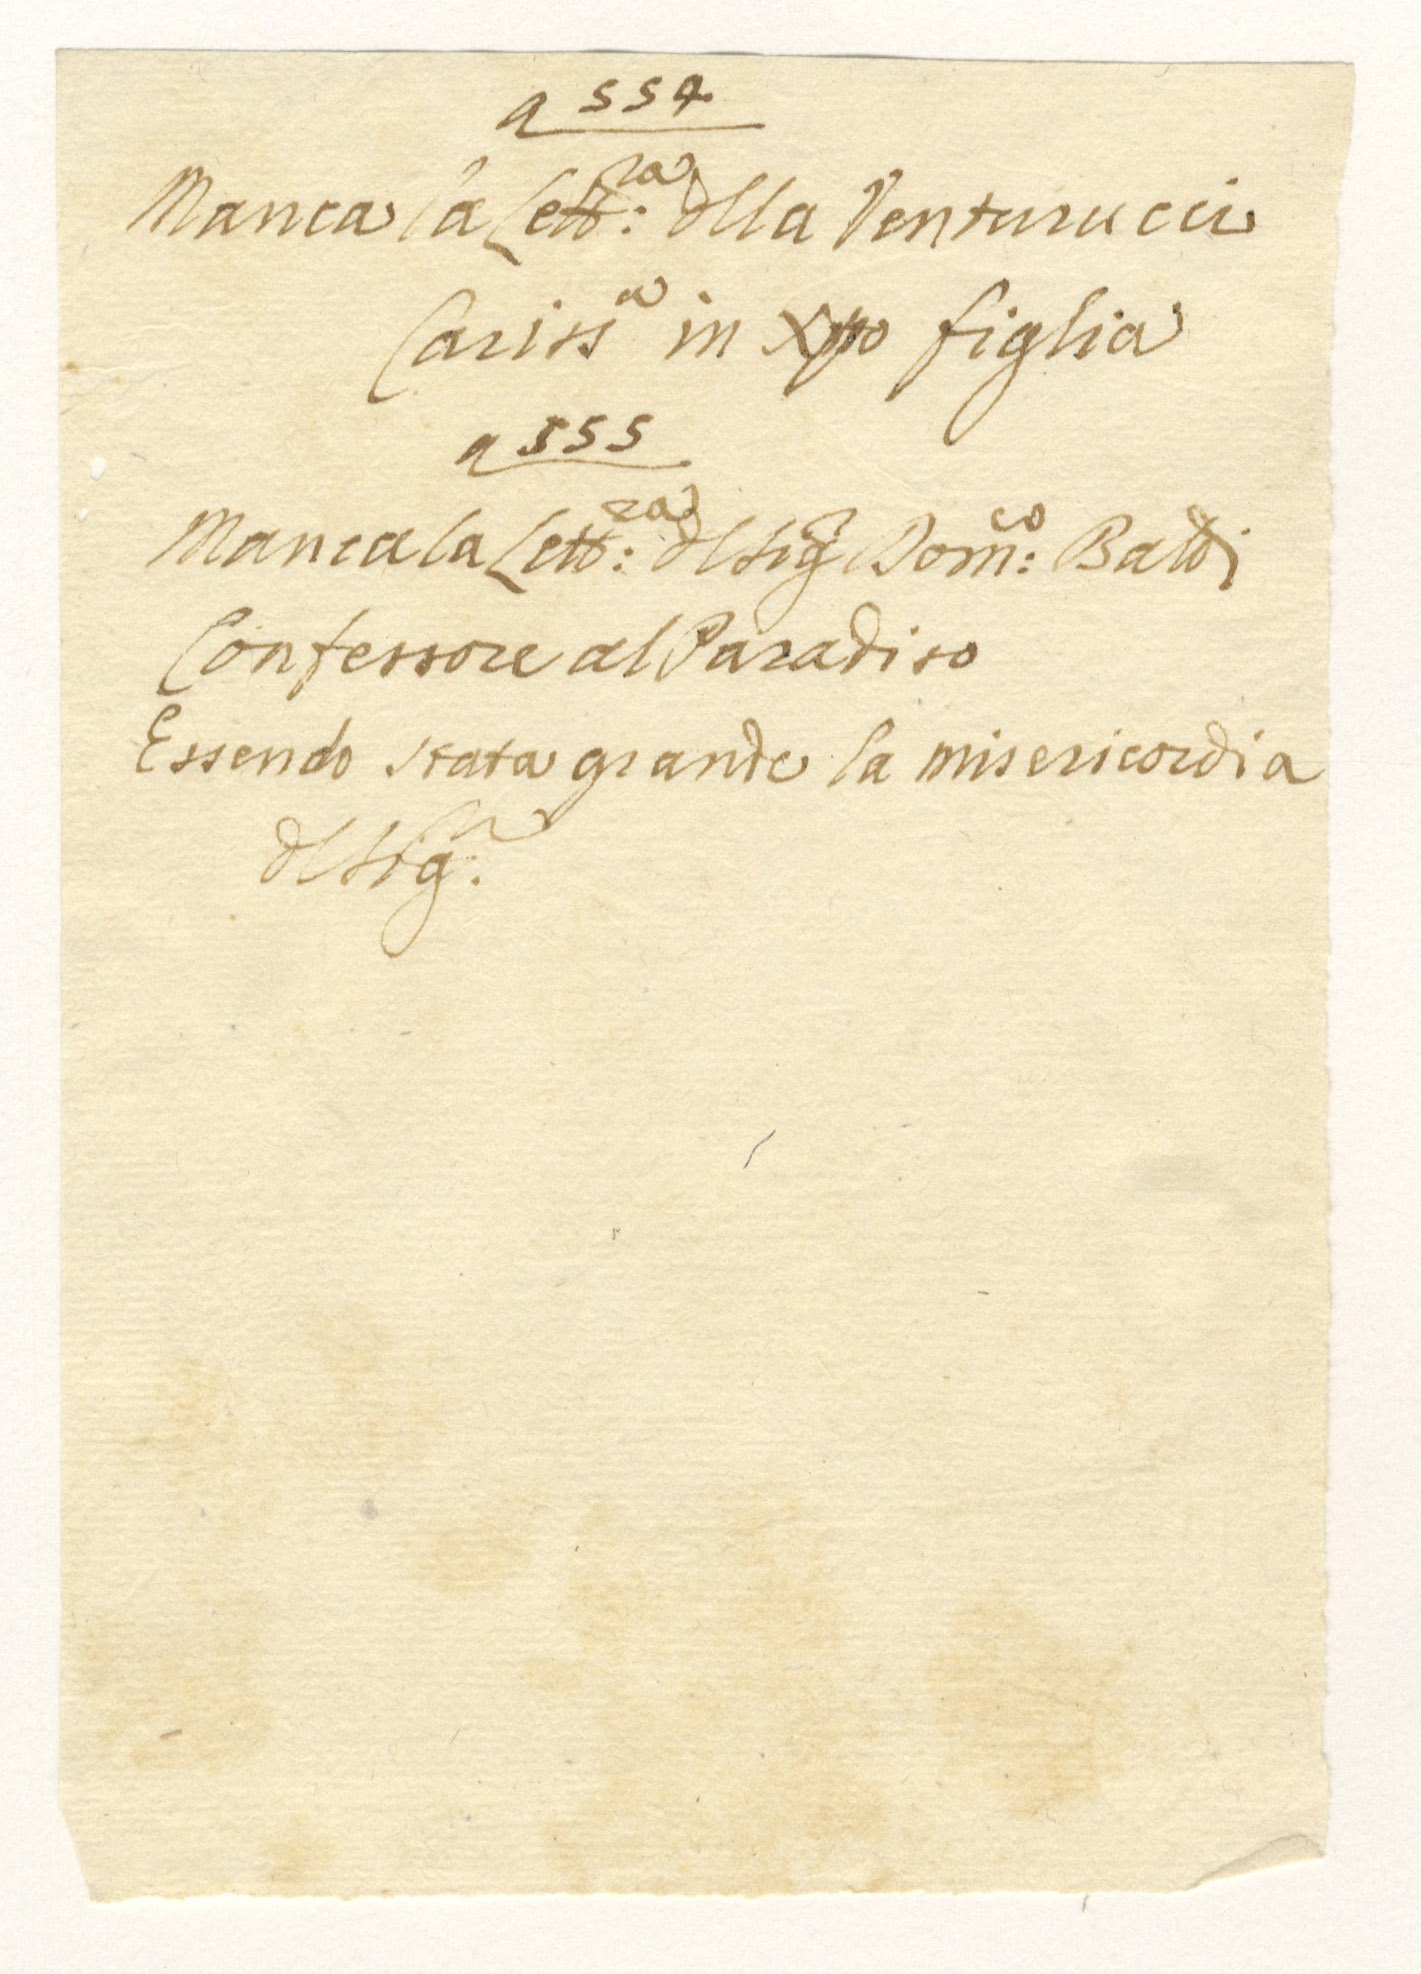 a 554
Manca la Lett:ra dlla Venturucci
Cariss.a in Xpo figlia
a 555
Manca la Lett:ra dl Sig.r Dom:co Baldi
Confessore al Paradiso
Essendo stata grande la misericordia
dl Sig.r